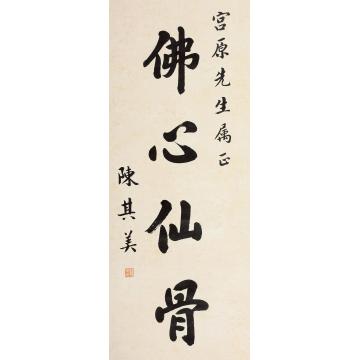 宫原先生属正
佛心仙骨
陳其美